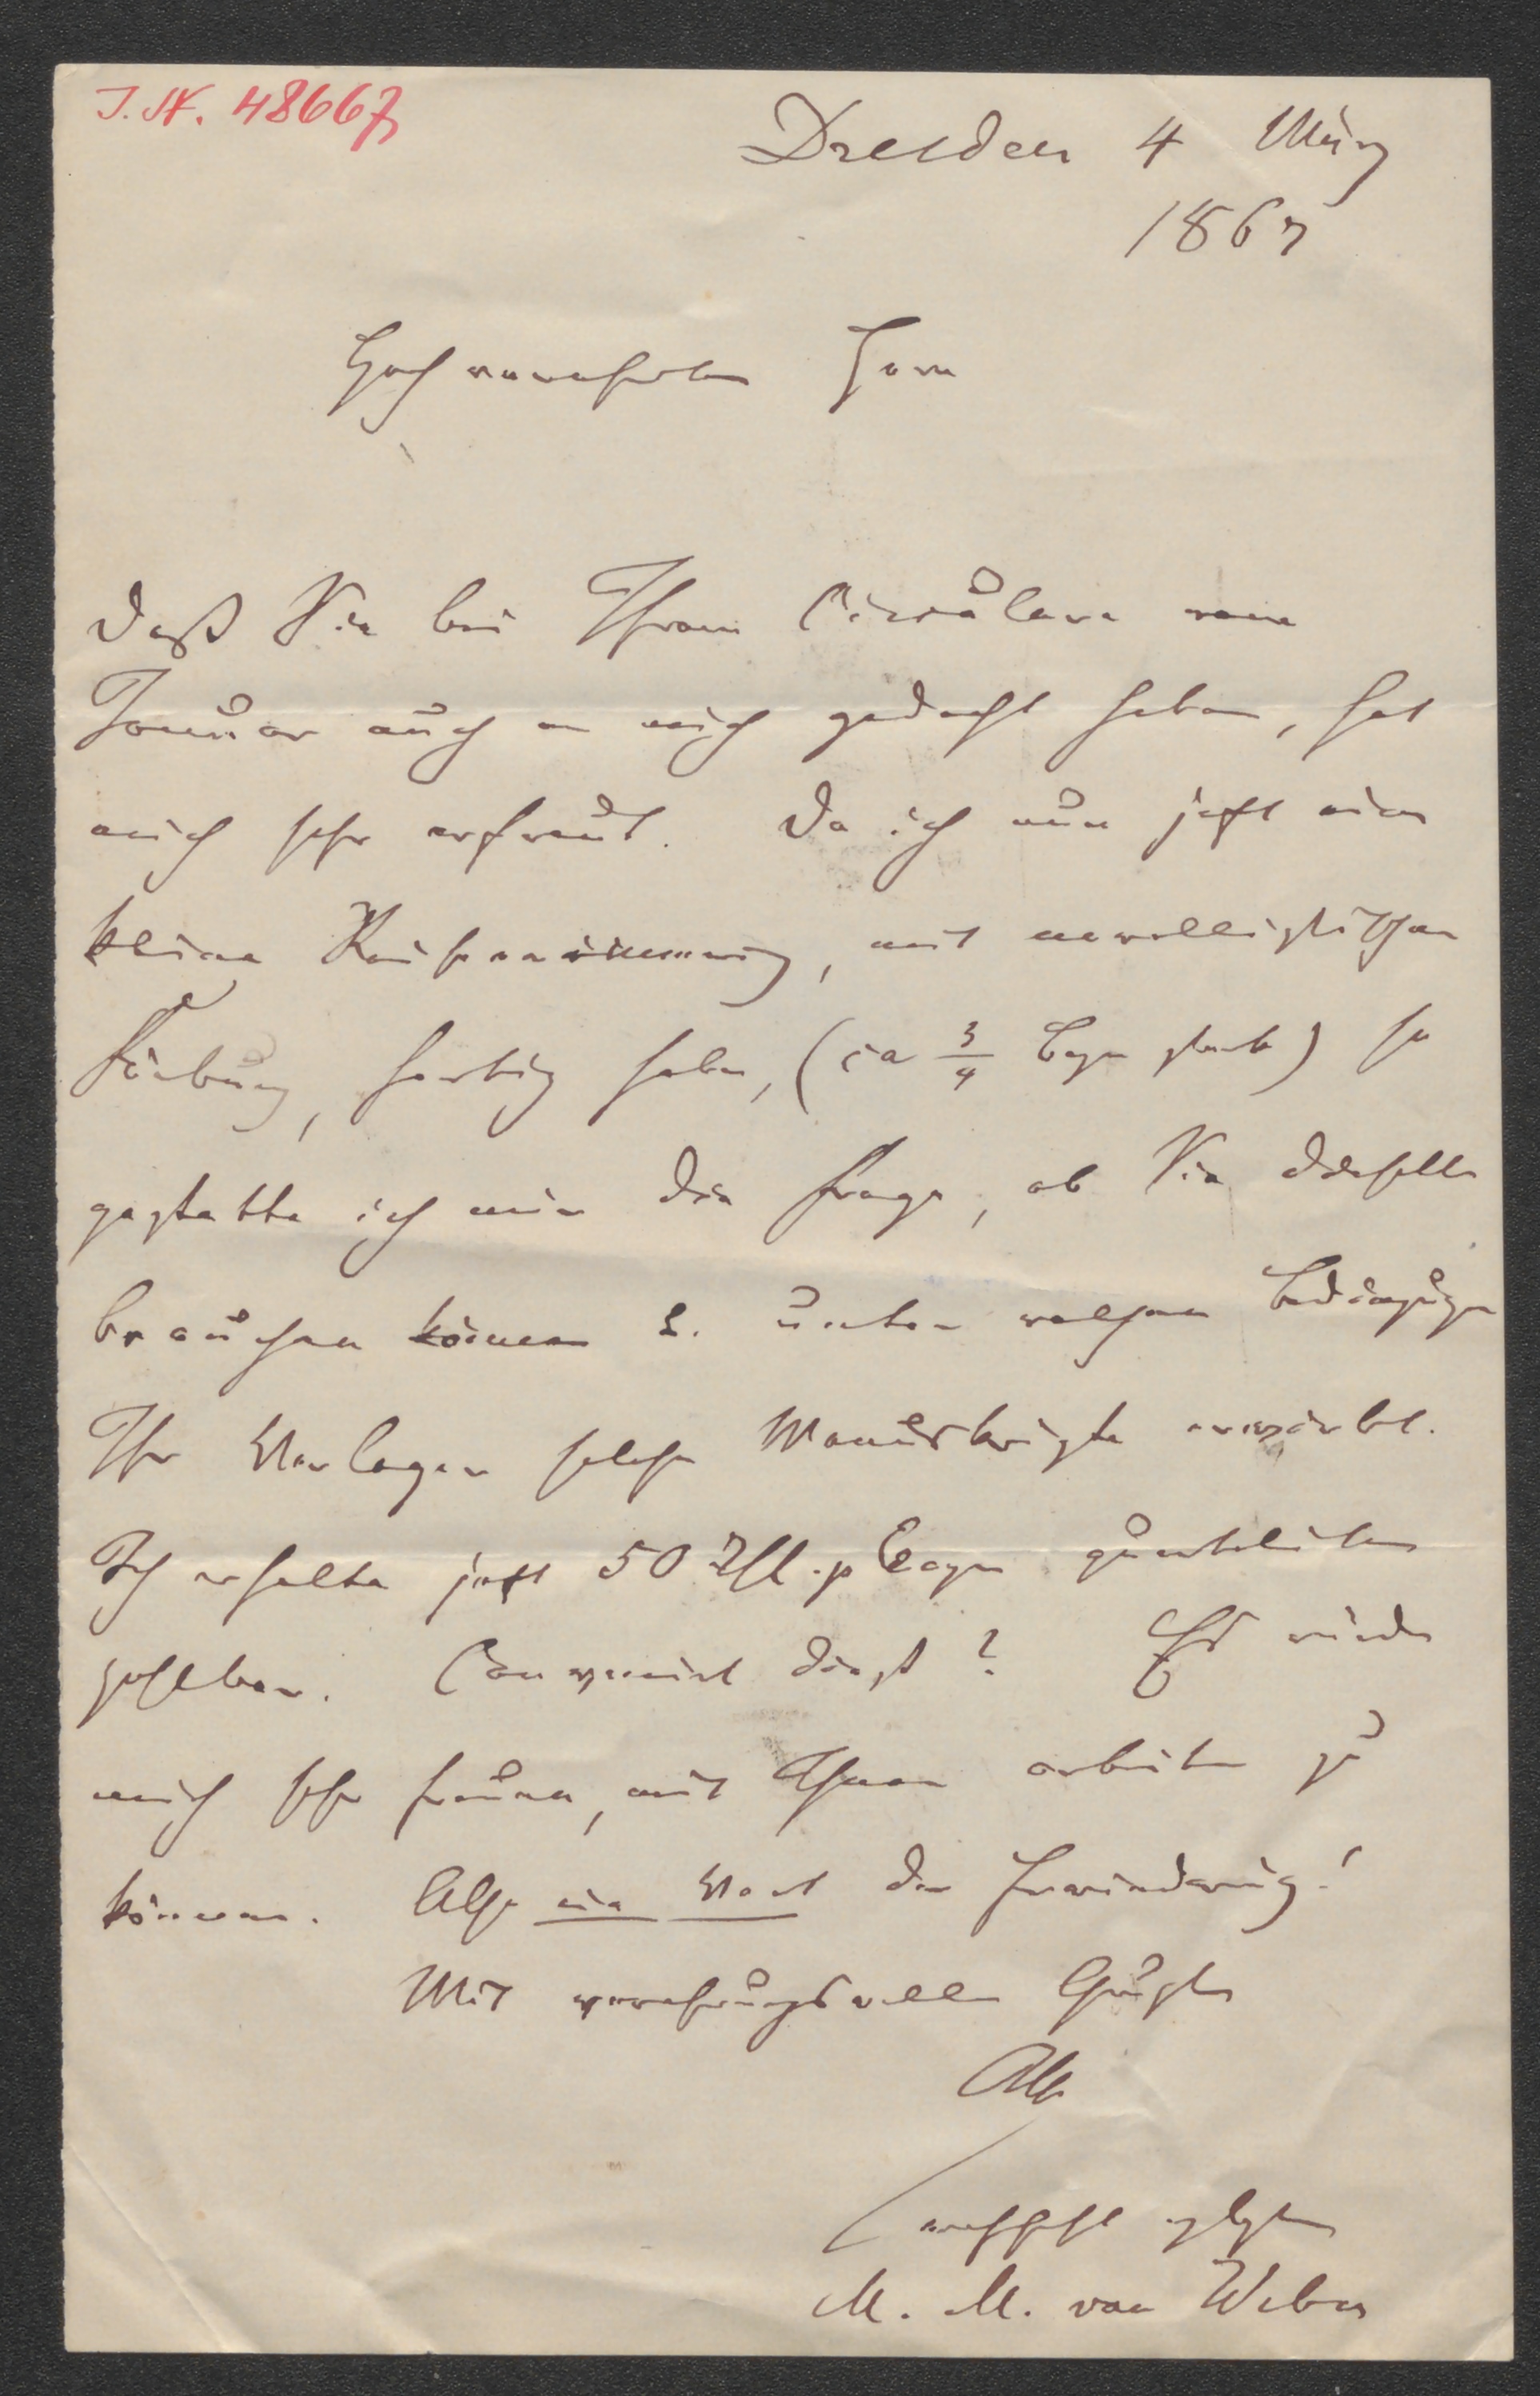 I. N. 48667
Dresden 4 März
1867
Hochverehrter Herr
Daß Sie bei Ihrem Circulare vom
Januar auch an mich gedacht haben, hat
mich sehr erfreut. Da ich nun jetzt eine
kleine Reiseerinnerung, mit novellistischer
Färbung, fertig habe, (ca 3/4 Bogen stark) so
gestatte ich mir die Frage, ob Sie dieselbe
brauchen können u. unter welchen Bedingungen
Ihr Verleger solche Manuskripte erwirbt.
Ich erhalte jetzt 50 p Bogen
zahlbar. Convenirt dieß? Es würde
mich sehr freuen, mit Ihnen arbeiten zu
können. Also ein Wort der Erwiederung!
Mit verehrungsvollen Grüßen
Ihr
ergebenster
M. M. von Weber